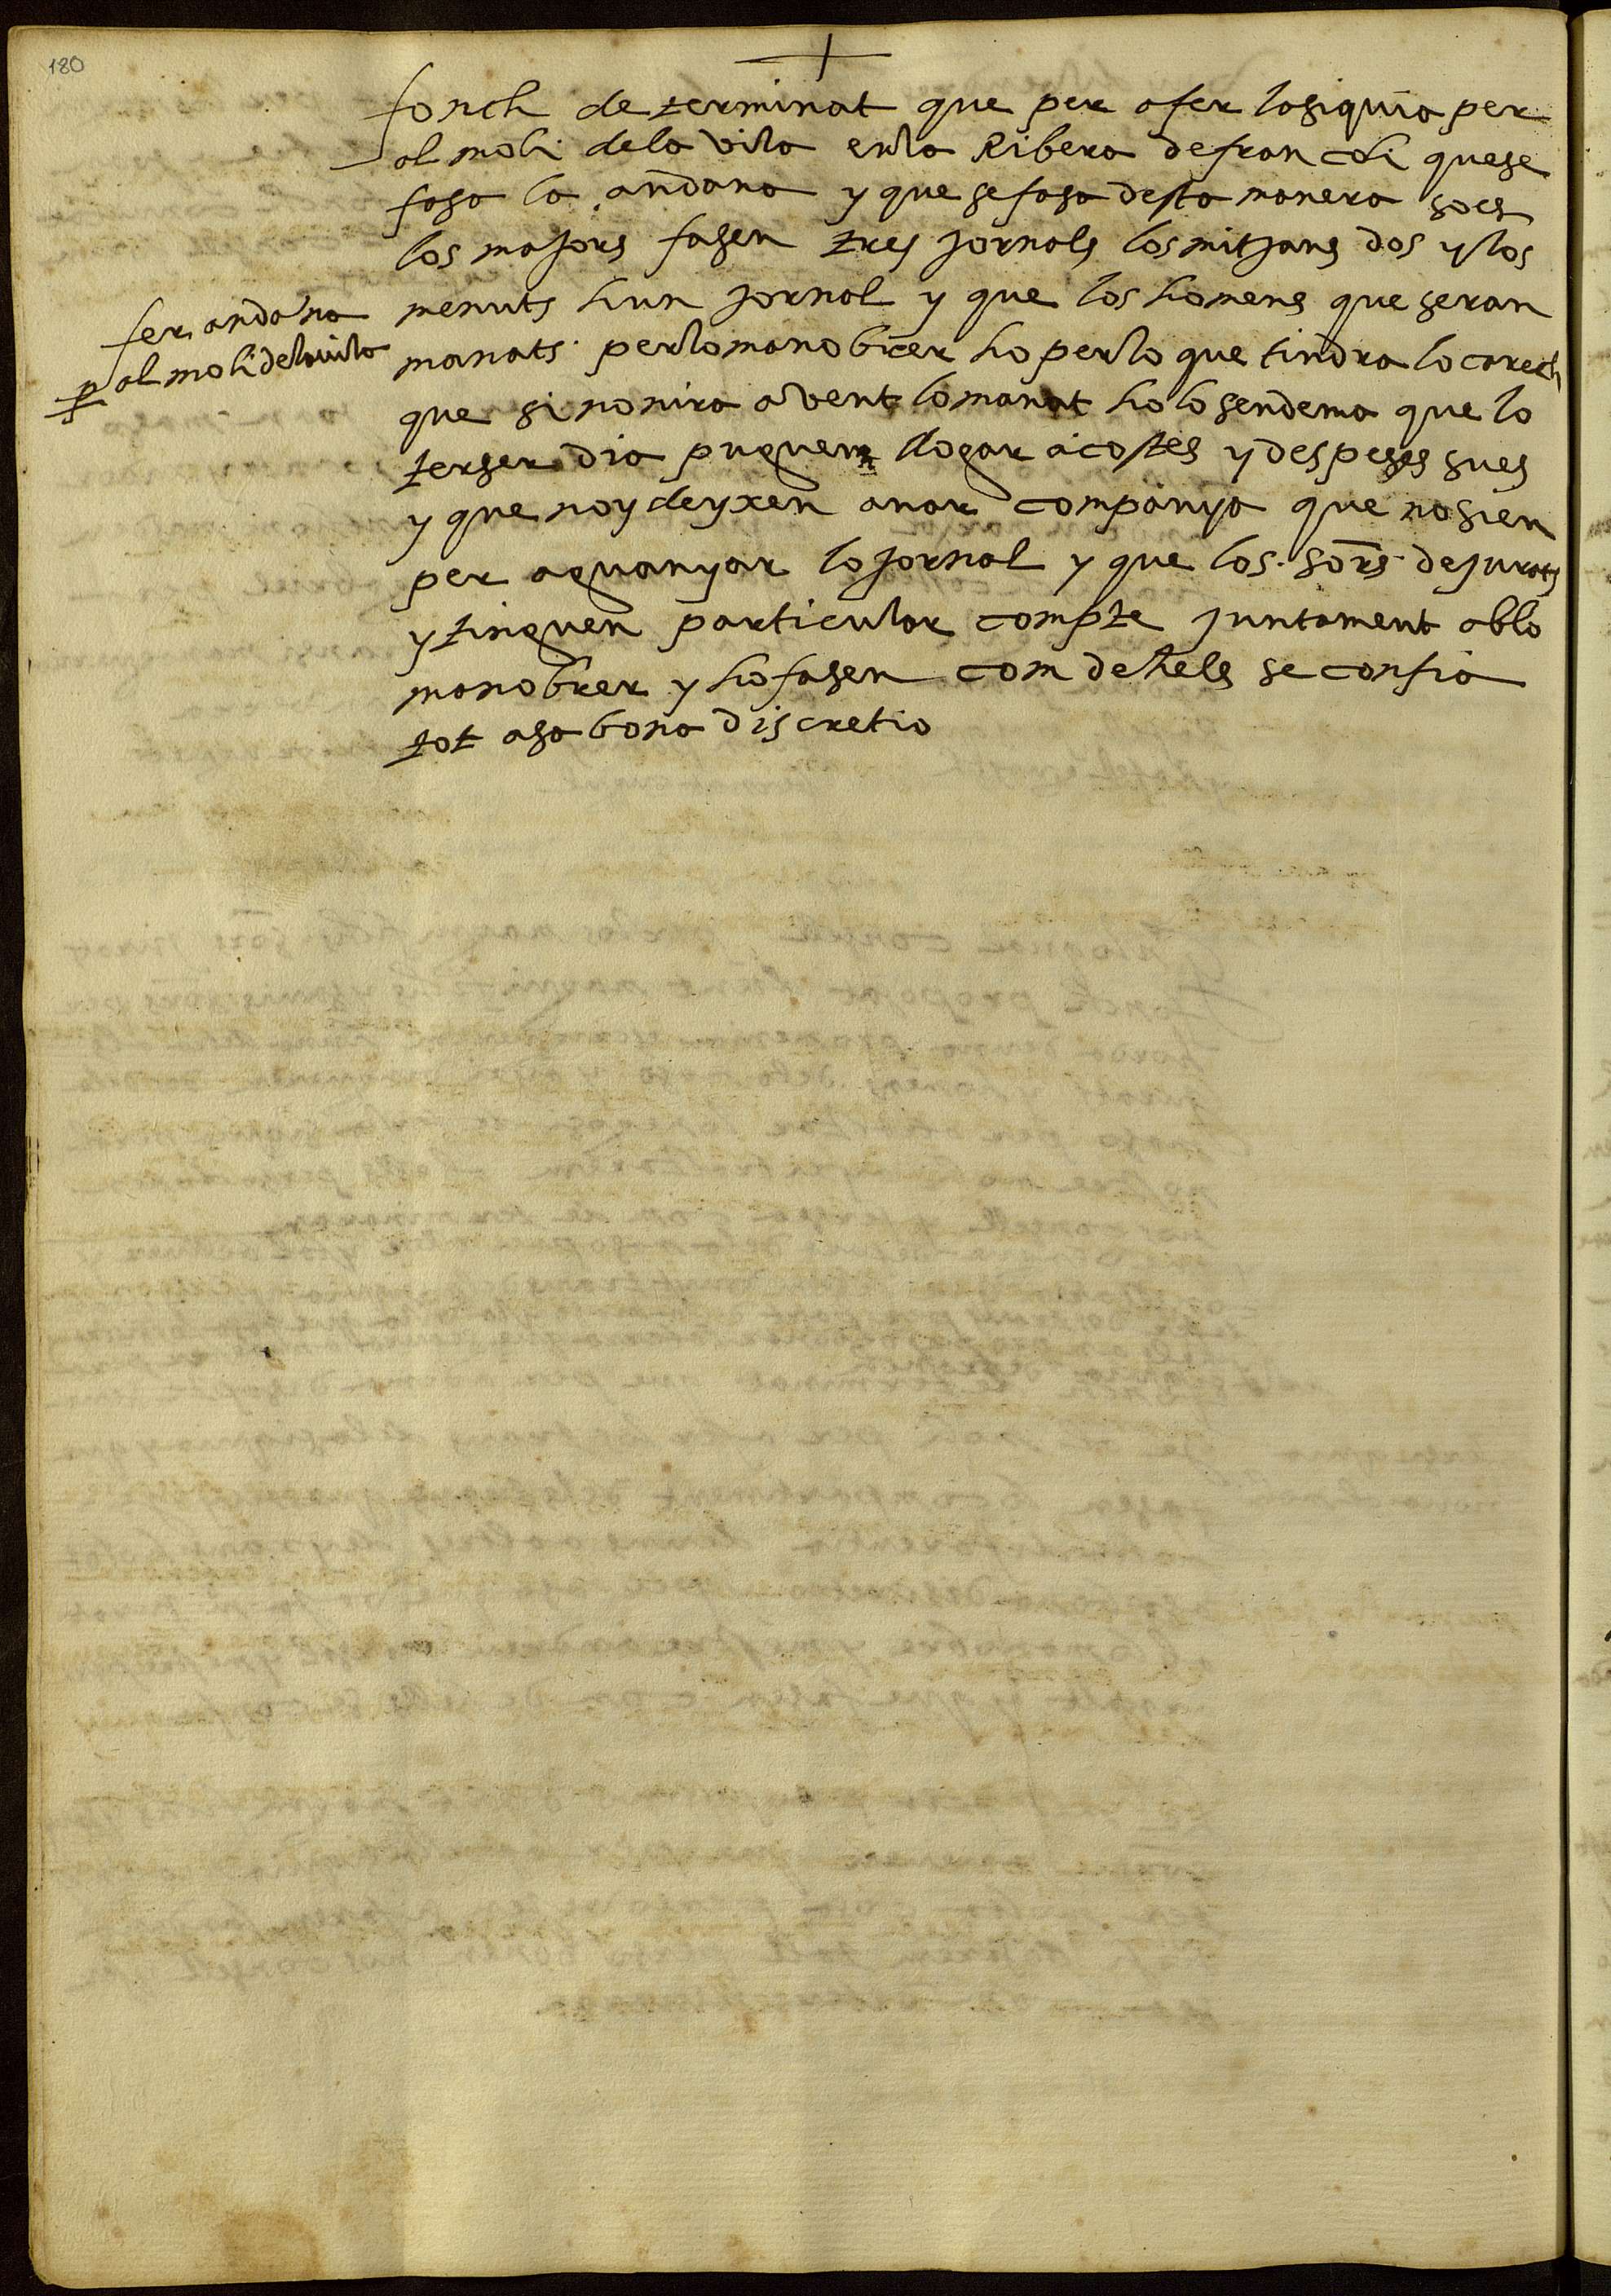 180
fonch determinat que per afer lasiquia per
al moli dela vila enla Ribera defrancoli quese
fasa la andana y que sefasa desta manera soes
los majors fasen tres jornals los mitjans dos y los
menuts hun jornal y que los homens que seran
manats perlo manobrer ho perlo que tindra lo carech
que si nonira avent lo manat ho lo sendema que lo
terser dia puguem llogar acostes y despeses sues
y que noy deyxen anar companya que no sien
per aguanyar lo jornal y que los sors de jurats
y tinguen particular compte juntament ablo
manobrer y ho fasen com de hels se confia
tot asa bona discretio
fer andana
p al moli dela vila